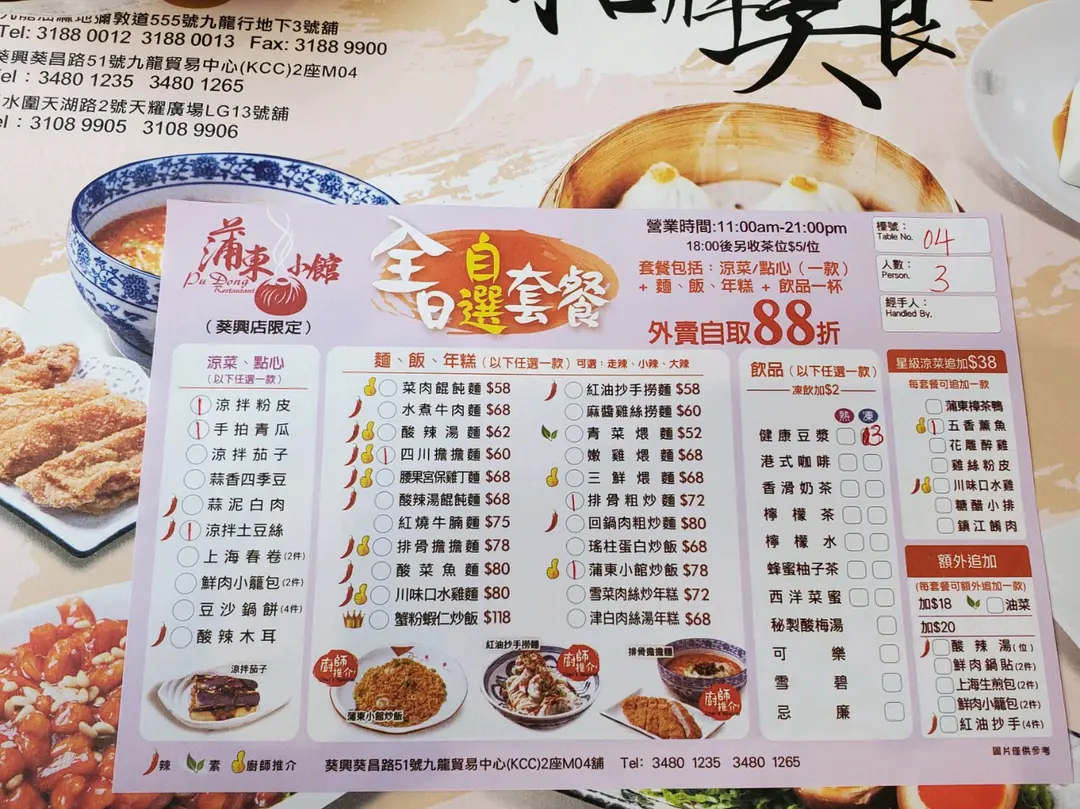 九龍油麻地彌敦道555號九龍行地下3號舖
Tel: 3188 0012 3188 0013 Fax: 3188 9900
葵興葵昌路51號九龍貿易中心(KCC)2座M04
el：3480 1235 3480 1265
水圍天湖路2號天耀廣場LG13號舖
el：3108 9905 3108 9906
蒲東小館
Pu Dong
Restaurant
(葵興店限定)
全日自選套餐
營業時間:11:00am-21:00pm
18:00後另收茶位$5/位
套餐包括：涼菜/點心（一款）
+ 麵、飯、年糕 + 飲品一杯
外賣自取88折
檯號：
Table No.
04
人數：
Person.
3
經手人：
Handled By.
涼菜、點心
(以下任選一款)
涼拌粉皮
手拍青瓜
涼拌茄子
蒜香四季豆
蒜泥白肉
涼拌土豆絲
上海春卷(2件)
鮮肉小籠包(2件)
豆沙鍋餅(4件)
酸辣木耳
涼拌茄子
麵、飯、年糕 (以下任選一款) 可選：走辣、小辣、大辣
菜肉餛飩麵 $58
水煮牛肉麵 $68
酸辣湯麵 $62
四川擔擔麵 $60
腰果宮保雞丁麵 $68
酸辣湯餛飩麵 $68
紅燒牛腩麵 $75
排骨擔擔麵 $78
酸菜魚麵 $80
川味口水雞麵 $80
蟹粉蝦仁炒飯 $118
紅油抄手撈麵 $58
麻醬雞絲撈麵 $60
青菜煨麵 $52
嫩雞煨麵 $68
三鮮煨麵 $68
排骨粗炒麵 $72
回鍋肉粗炒麵 $80
瑤柱蛋白炒飯 $68
蒲東小館炒飯 $78
雪菜肉絲炒年糕 $72
津白肉絲湯年糕 $68
廚師推介
蒲東小館炒飯
紅油抄手撈麵
廚師推介
排骨擔擔麵
廚師推介
飲品 (以下任選一款)
凍飲加$2
熱 凍
健康豆漿 3
港式咖啡
香滑奶茶
檸檬茶
檸檬水
蜂蜜柚子茶
西洋菜蜜
秘製酸梅湯
可樂
雪碧
忌廉
星級涼菜追加$38
每套餐可追加一款
蒲東樟茶鴨
五香薰魚
花雕醉雞
雞絲粉皮
川味口水雞
糖醋小排
鎮江餚肉
額外追加
(每套餐可額外追加一款)
加$18 油菜
加$20
酸辣湯(位)
鮮肉鍋貼(2件)
上海生煎包(2件)
鮮肉小籠包(2件)
紅油抄手(4件)
圖片僅供參考
辣 素 廚師推介 葵興葵昌路51號九龍貿易中心(KCC)2座M04舖 Tel: 3480 1235 3480 1265